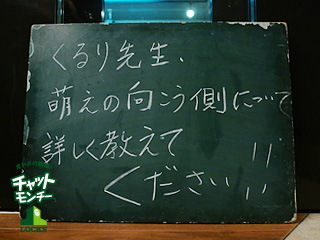 くるり先生、
萌えの向こう側について
詳しく教えて
ください!!
チャット
モンチー